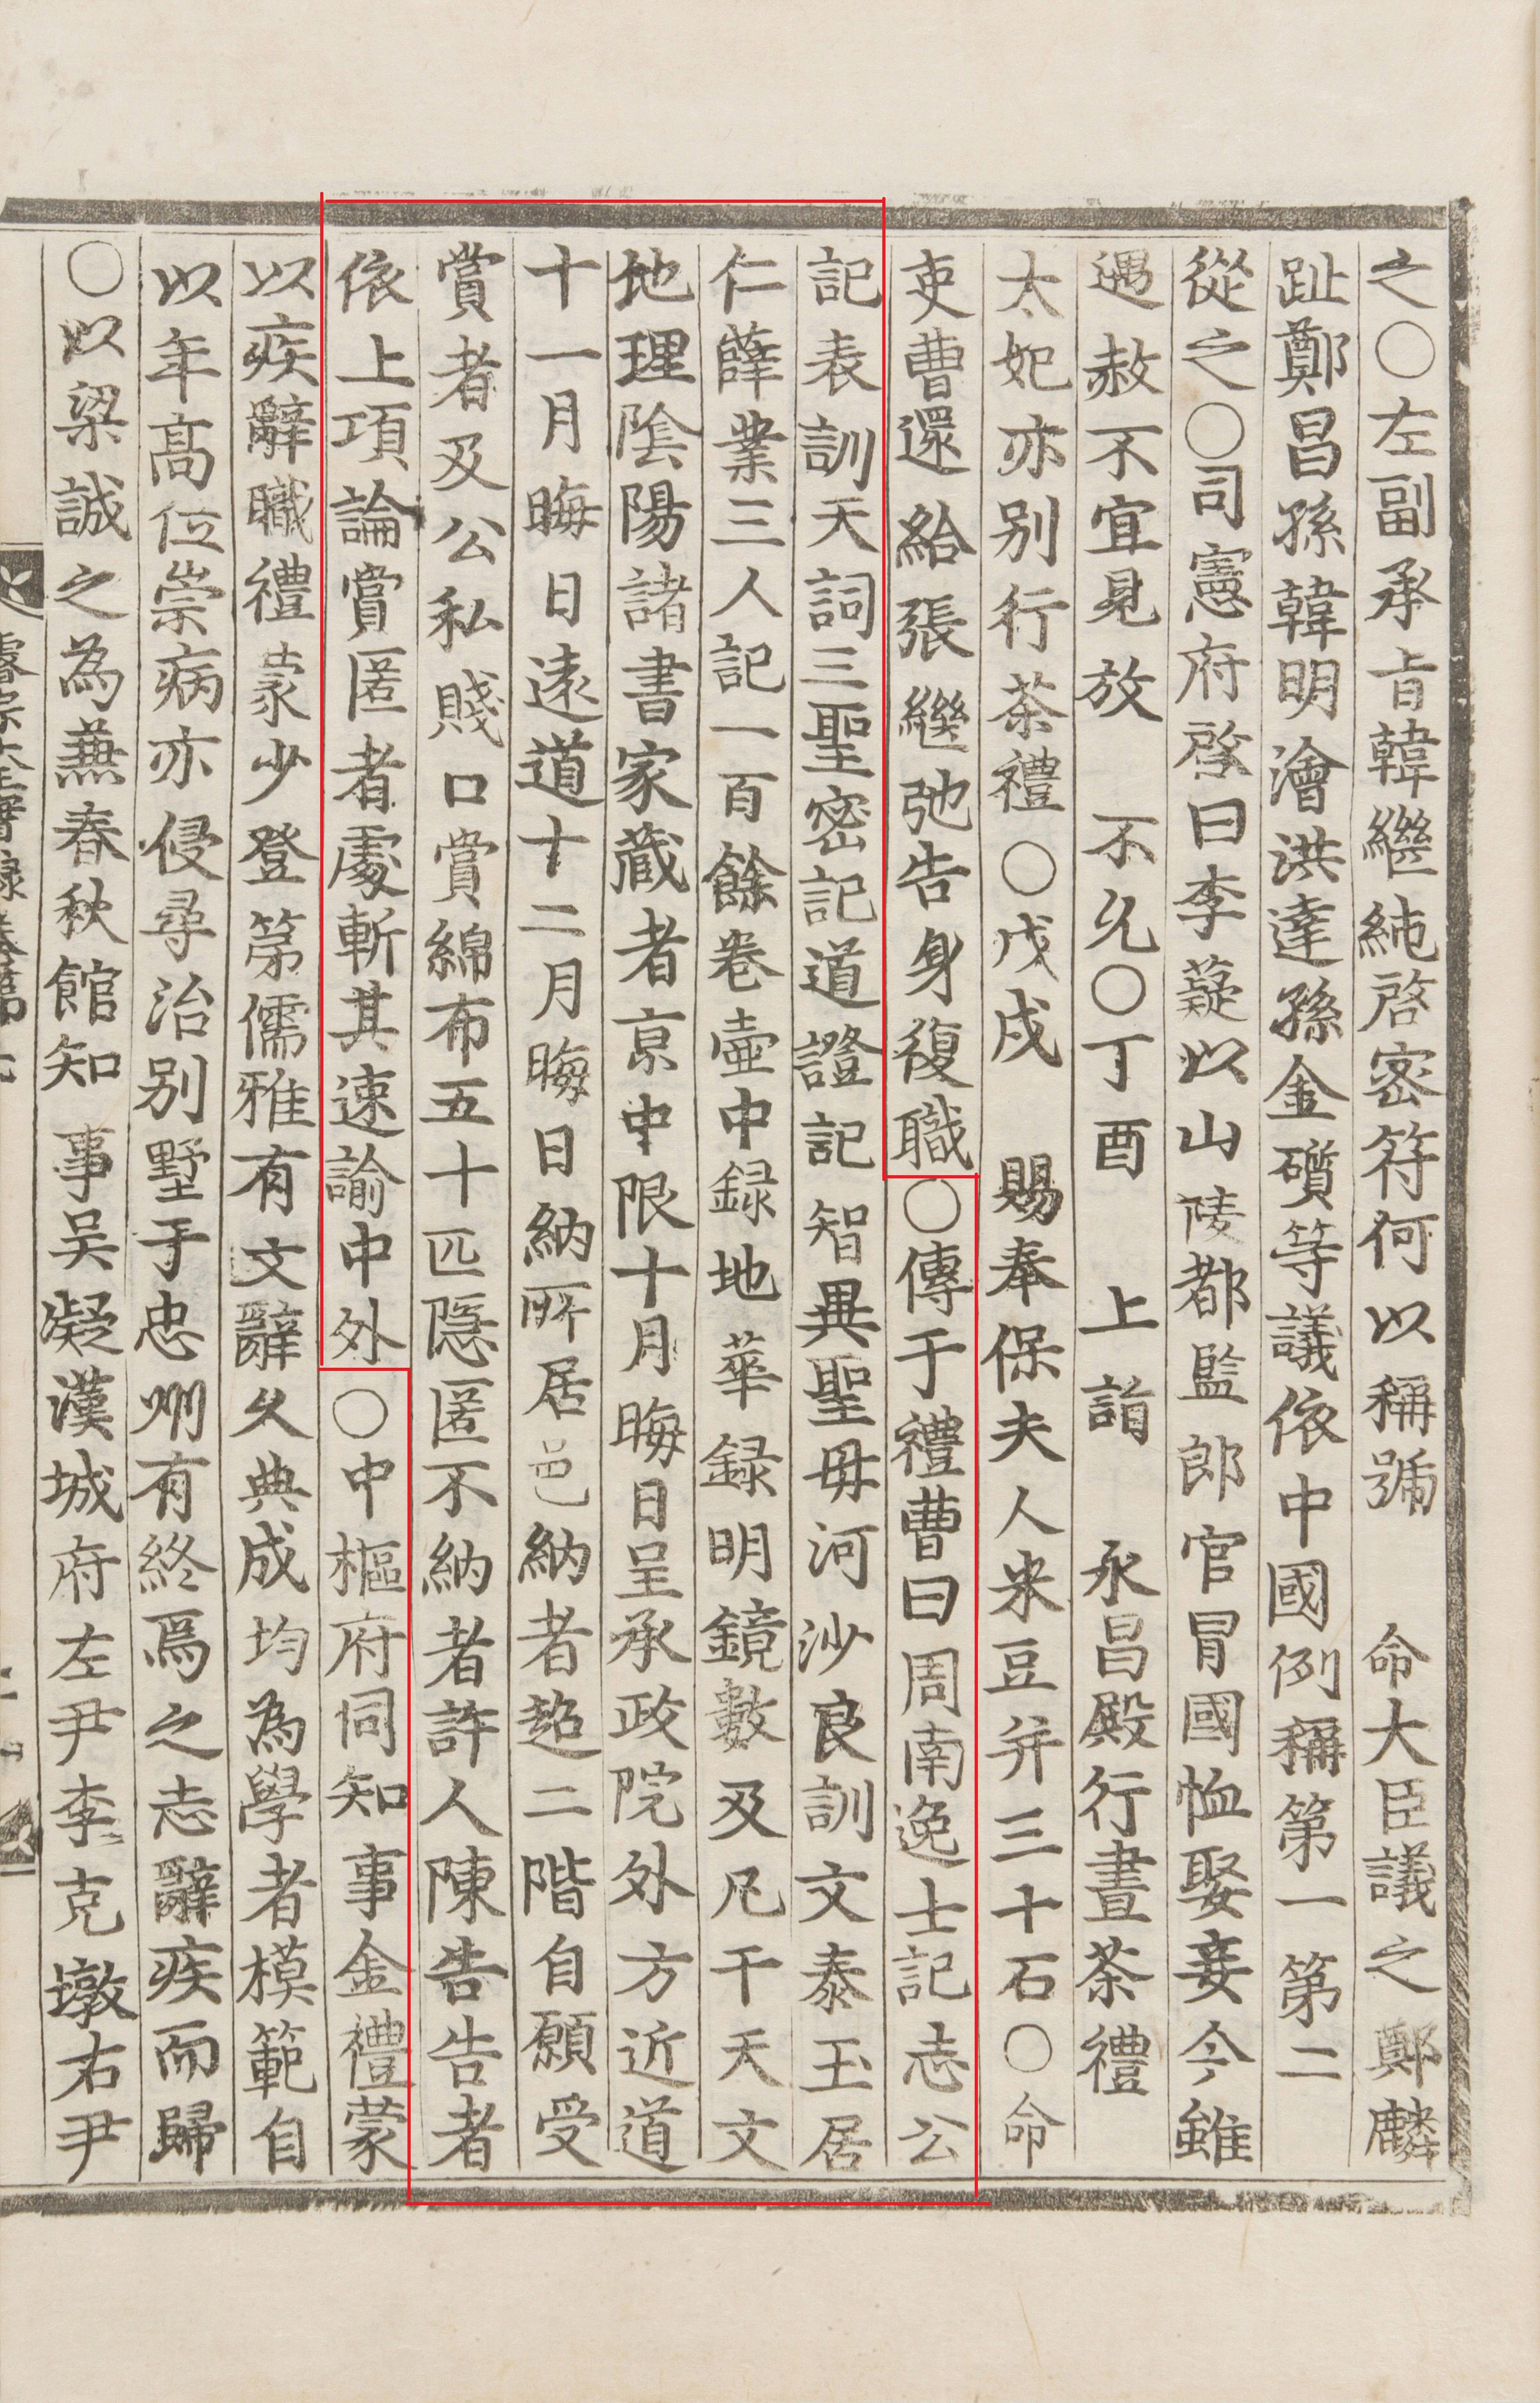 之○左副承旨韓繼純啓密符何以稱號 命大臣議之鄭麟
趾鄭昌孫韓明澮洪達孫金礩等議依中國例稱第一第二
從之○司憲府啓曰李薿以山陵都監郎官冒國恤娶妾今雖
遇赦不宜見放 不允○丁酉 上詣 永昌殿行晝茶禮
太妃亦别行茶禮○戊戌 賜奉保夫人米豆并三十石○命
吏曹還給張繼弛告身復職○傳于禮曹曰周南逸士記志公
記表訓天詞三聖密記道證記智異聖母河沙良訓文泰玉居
仁薛業三人記一百餘卷壷中録地華録明鏡數及凡干天文
地理陰陽諸書家藏者京中限十月晦日呈承政院外方近道
十一月晦日遠道十二月晦日納所居邑納者超二階自願受
賞者及公私賤口賞綿布五十匹隱匿不納者許人陳告告者
依上項論賞匿者處斬其速諭中外○中樞府同知事金禮蒙
以疾辭職禮蒙少登第儒雅有文辭久典成均為學者模範自
以年髙位崇病亦侵尋治别墅于忠州有終焉之志辭疾而歸
○以梁誠之為兼春秋館知 事吴凝漢城府左尹李克墩右尹